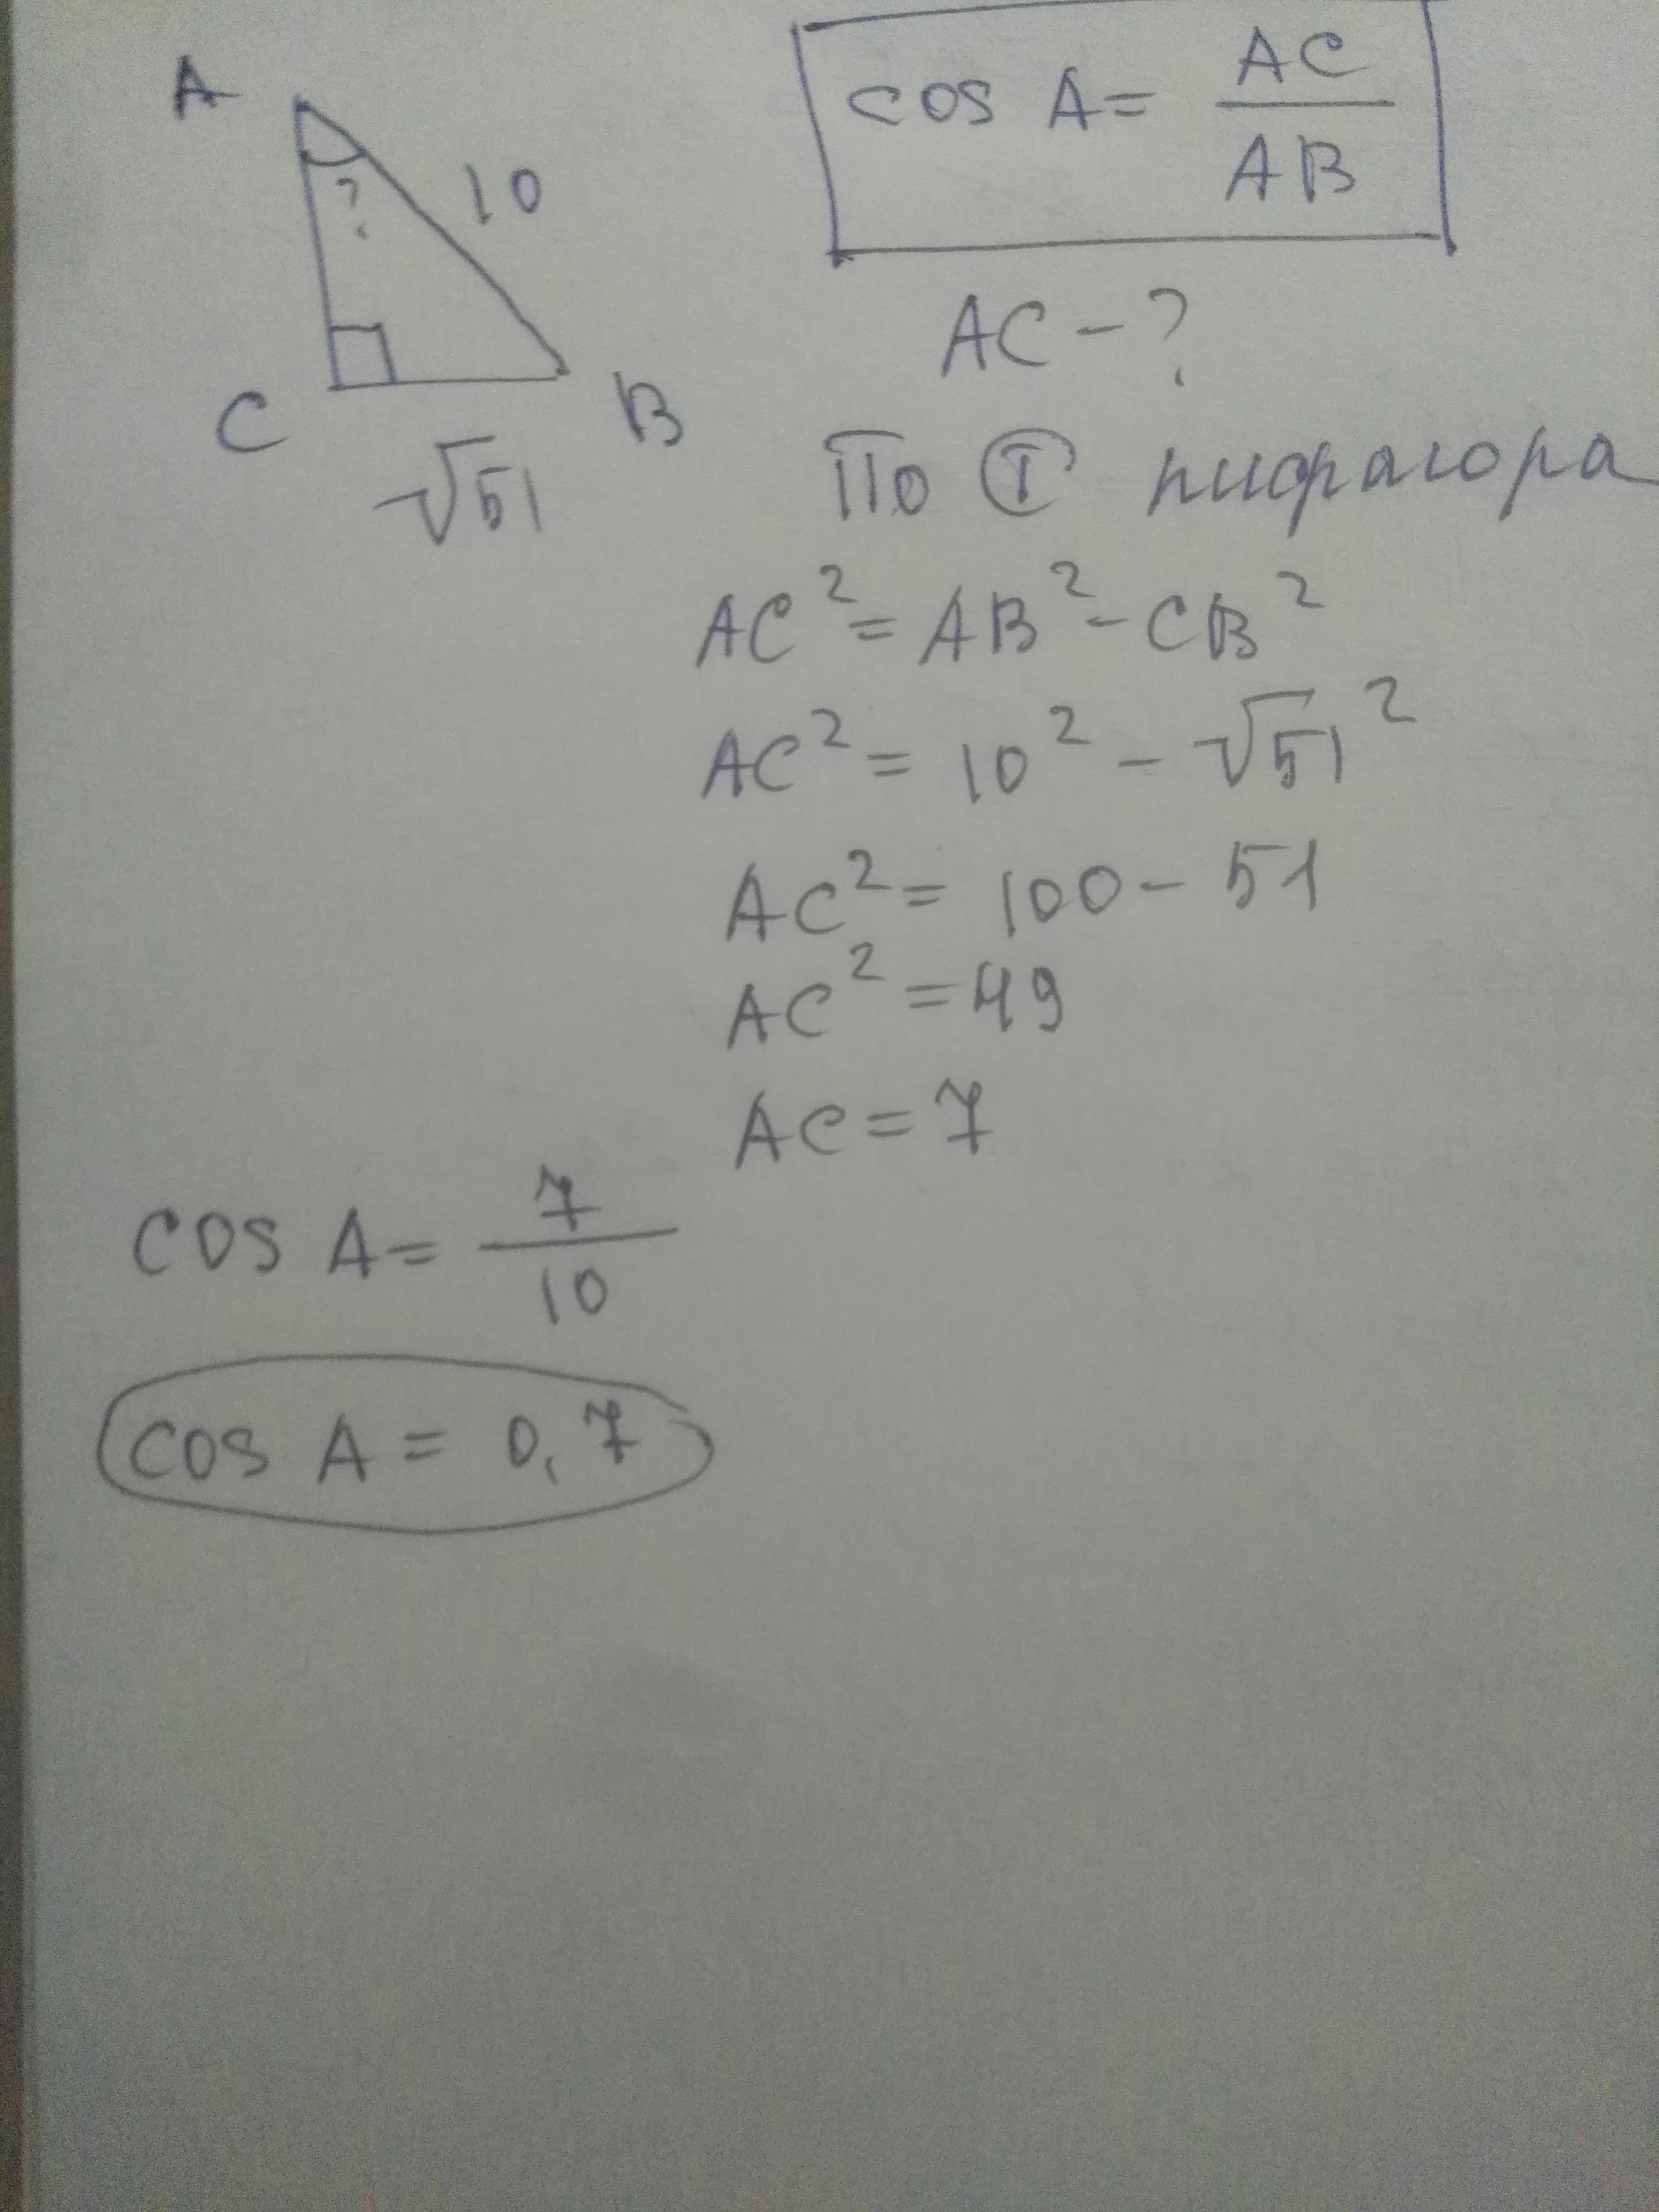 A
?
10
C
B
√51
cos A = AC/AB
AC - ?
По Ⓣ пифагора
AC² = AB² - CB²
AC² = 10² - √51²
AC² = 100 - 51
AC² = 49
AC = 7
cos A = 7/10
cos A = 0,7